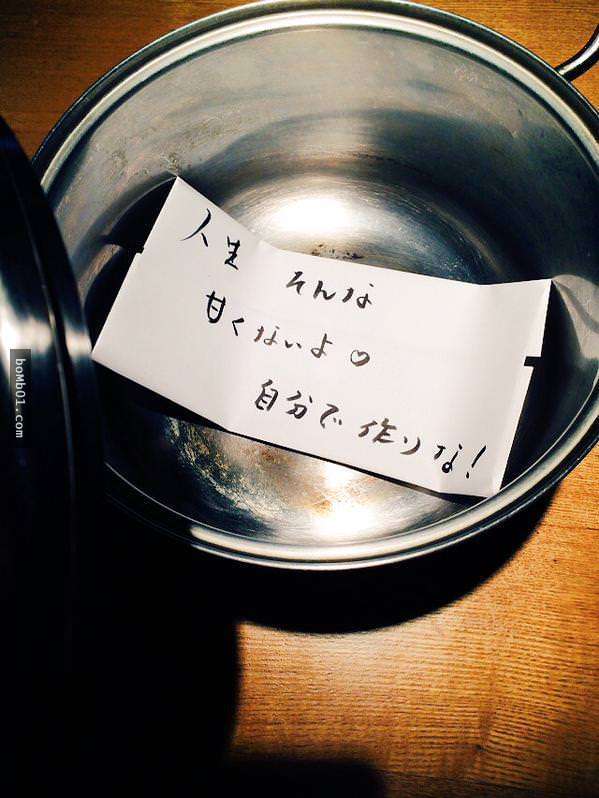 人生 そんな
甘くないよ♡
自分で作りな!
boMb01.com